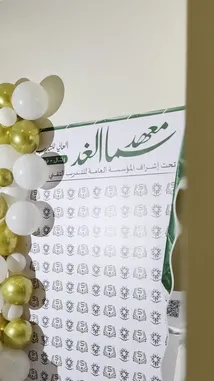 معهد سما الغد
العالي للتدريب
تحت إشراف المؤسسة العامة للتدريب التقني